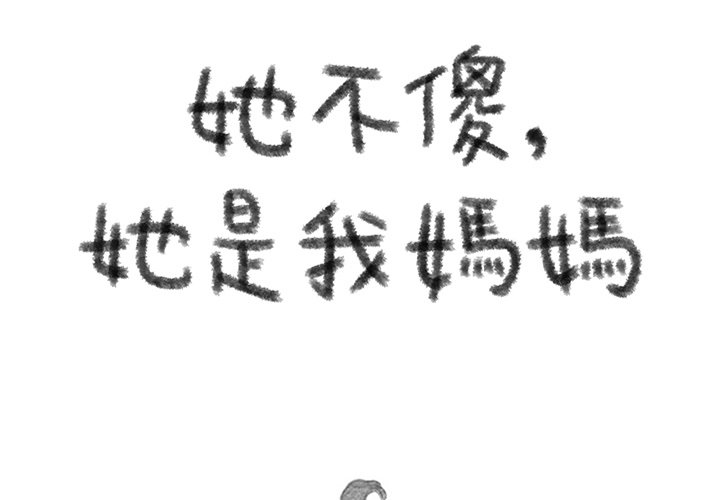 她不傻,
她是我媽媽